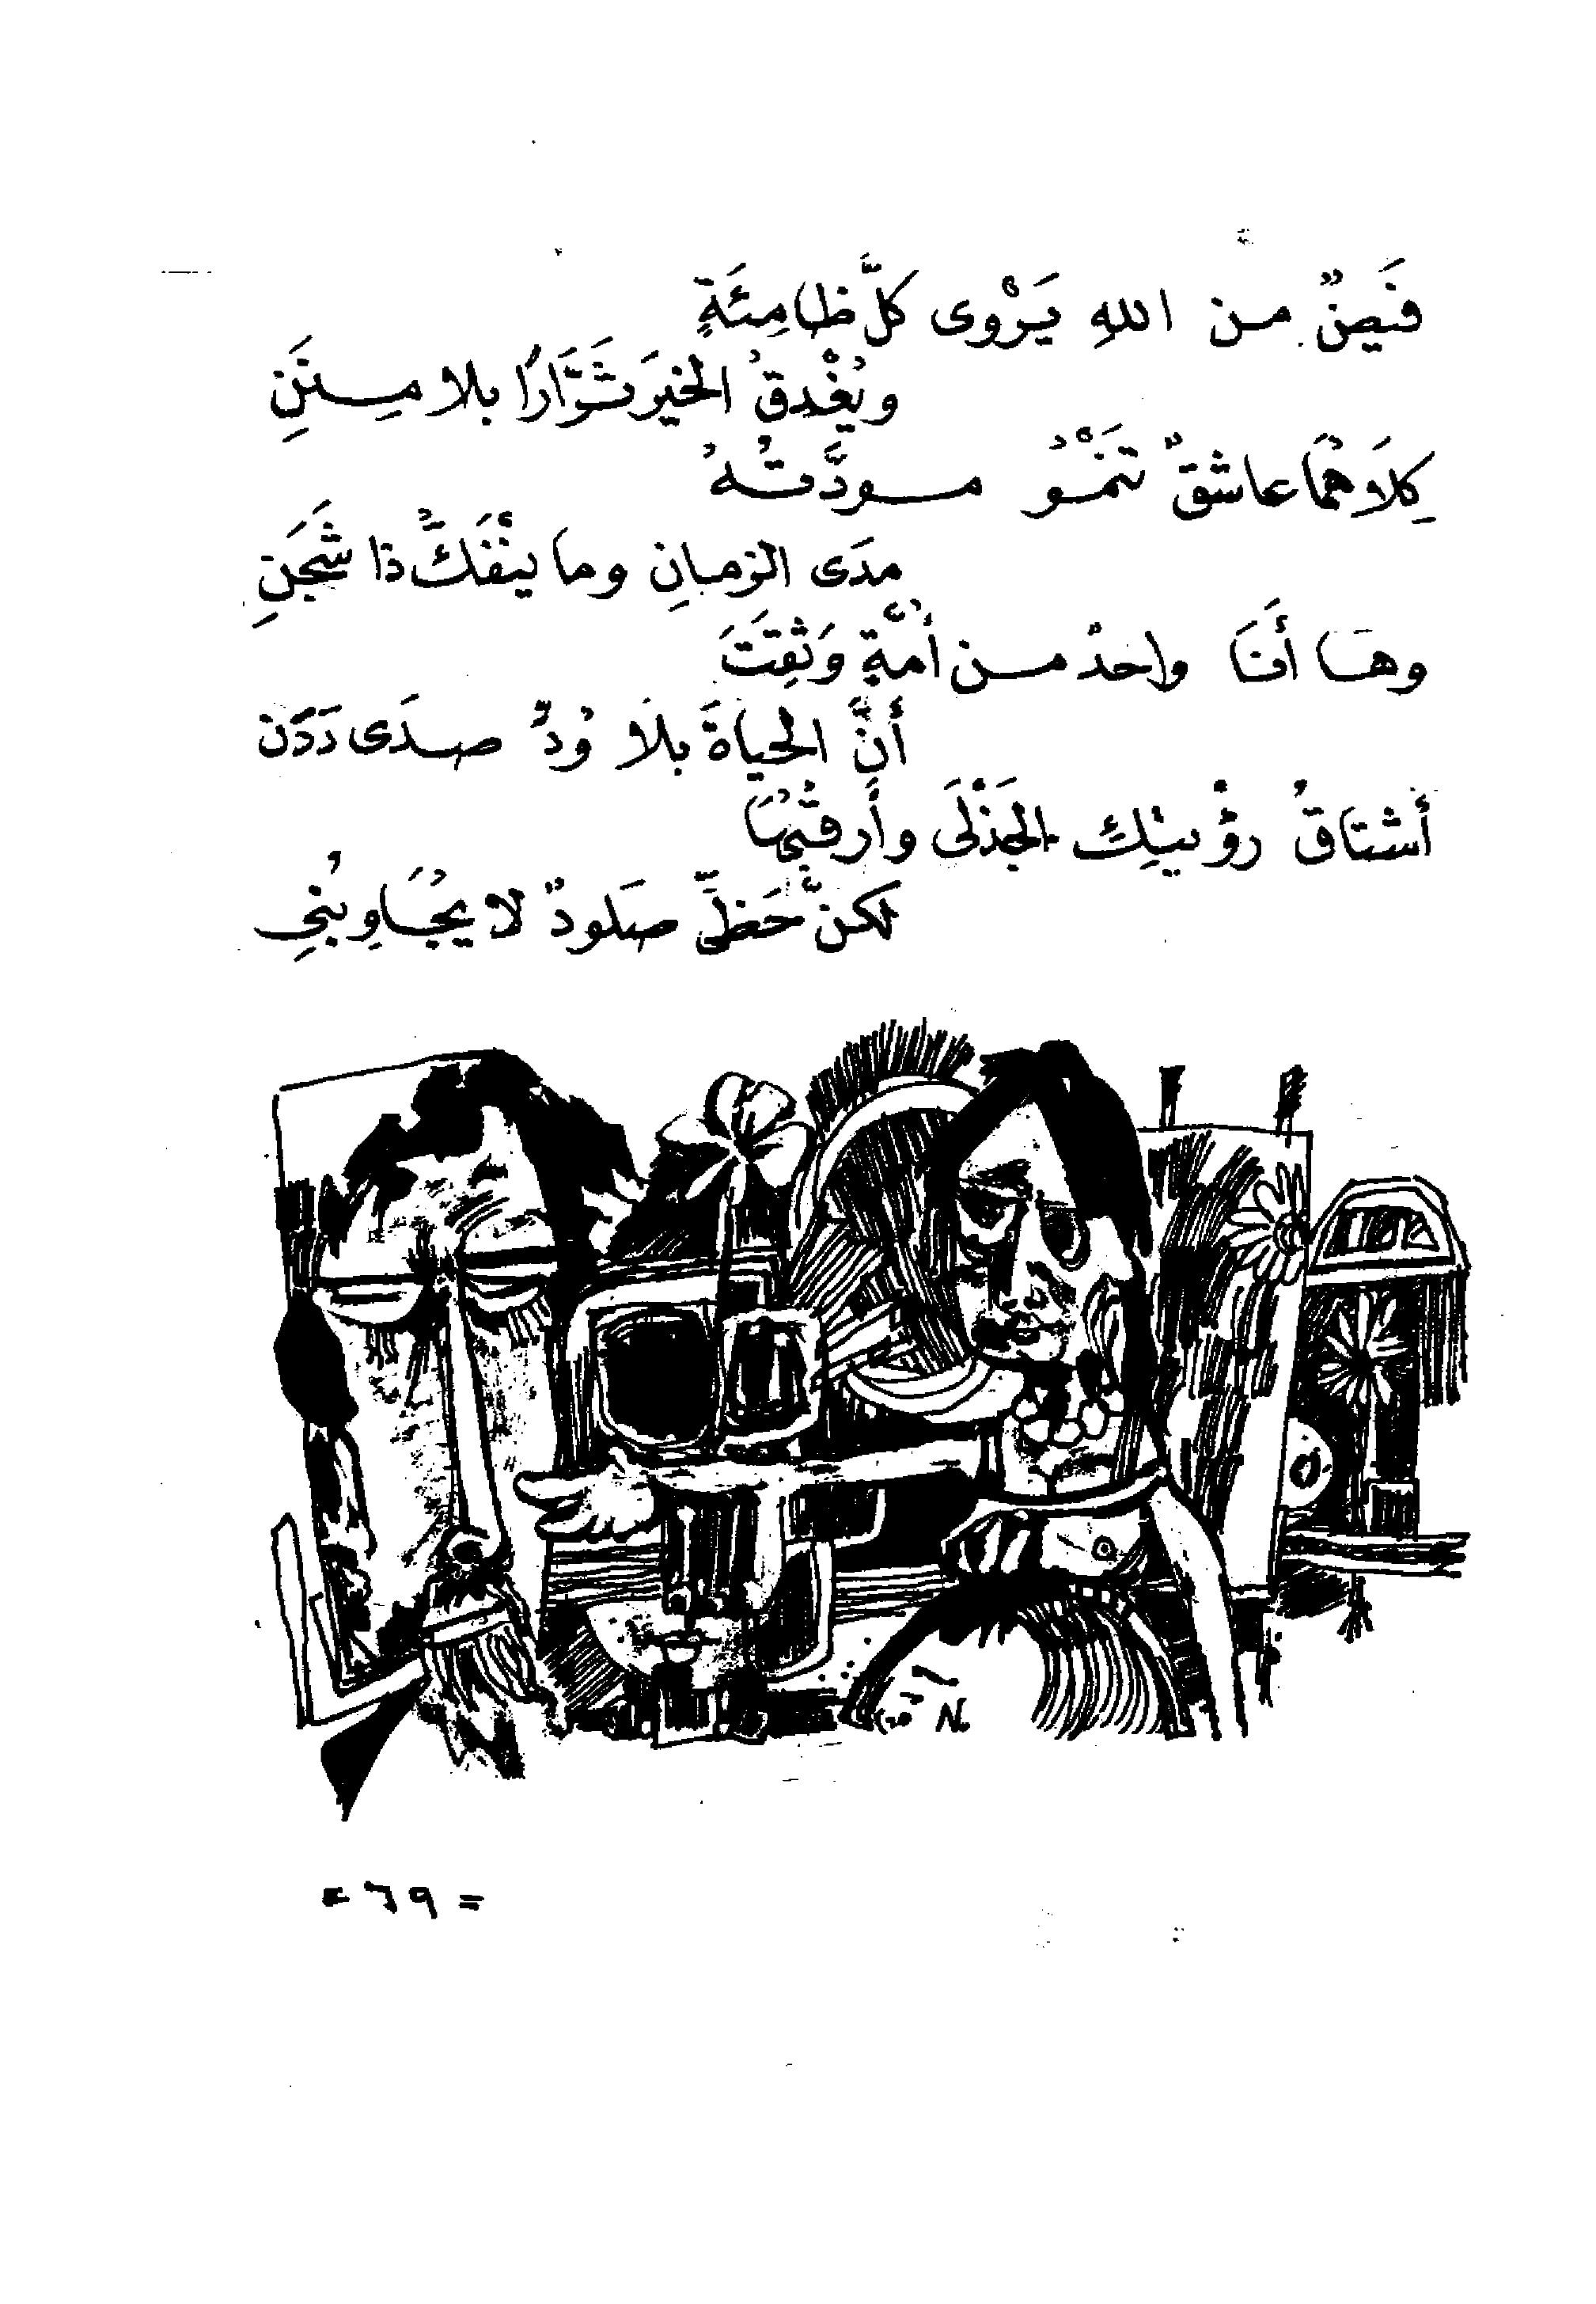 فَيضٌ من اللهِ يَرْوى كلَّ ظامِئَةٍ
ويُغْدقُ الخيرَ ثَرَّارًا بلا مِنَنِ
كِلاَهُمَا عاشقٌ تَنْمُو مودَّتُهُ
مدَى الزمانِ وما ينْفَكُّ ذا شَجَنِ
وهَا أَنَا واحدٌ من أُمَّةٍ وَثِقَتَ
أَنَّ الحياةَ بلاَ وُدٍّ صدَى دَدَن
أشتاقُ رؤْيتكِ الجَذْلَى وأَرقُبُهَا
لكنَّ حَظِّى صَلودٌ لا يُجَاوِبُنِى
= ٦٩ =